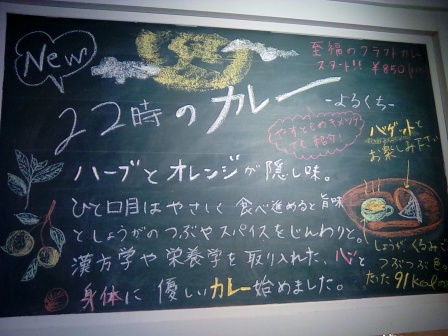 New
至福のクラフトカレー
スタート!! ¥850
22時のカレー
-よるくち-
バゲットと
お楽しみ下さい
ハーブとオレンジが隠し味。
ひと口目はやさしく 食べ進めると旨味
としょうがのつぶやスパイスをじんわりと。
漢方学や栄養学を取り入れた、心と
身体に 優しいカレー始めました。
しょうが、くるみ
つぶつぶ食
たった91Kcal